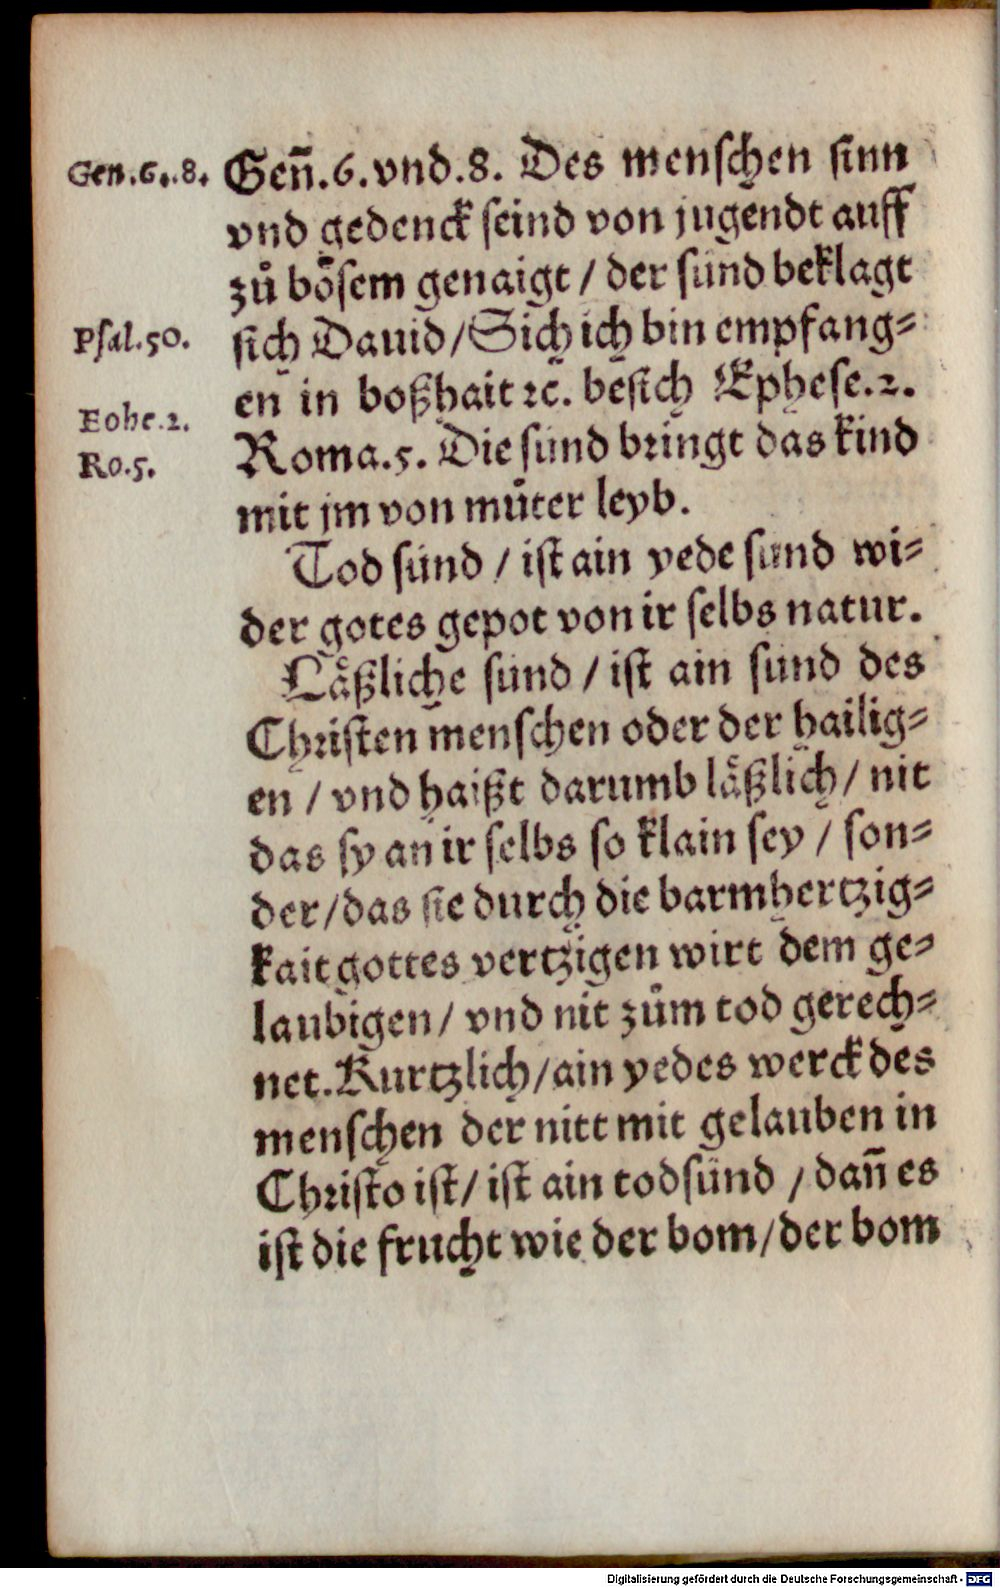 Gen.6.8. Geñ.6.vnd.8. Des menschen sinn
vnd gedenck seind von jugendt auff
zů bösem genaigt / der sünd beklagt
Psal.50. sich Dauid / Sich ich bin empfang⸗
en in boßhait ꝛc. besich Ephese.2.
Ephe.2.
Ro.5. Roma.5. Die sünd bringt das kind
mit jm von můter leyb.
Tod sünd / ist ain yede sünd wi⸗
der gotes gepot von ir selbs natur.
Läßliche sünd / ist ain sund des
Christen menschen oder der hailig⸗
en / vnd haißt darumb läßlich / nit
das sy an ir selbs so klain sey / son⸗
der / das sie durch die barmhertzig⸗
kait gottes vertzigen wirt dem ge⸗
laubigen / vnd nit zům tod gerech⸗
net. Kurtzlich / ain yedes werck des
menschen der nitt mit gelauben in
Christo ist / ist ain todsünd / dañ es
ist die frucht wie der bom / der bom
Digitalisierung gefördert durch die Deutsche Forschungsgemeinschaft - DFG